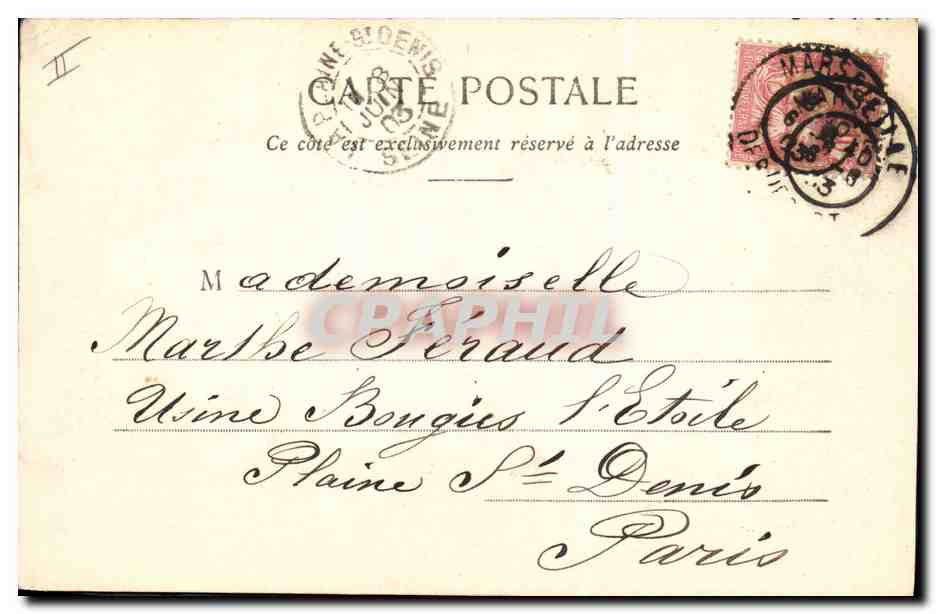 II
CARTE POSTALE
Ce côté est exclusivement réservé à l'adresse
PLAINE ST DENIS
8
JUIN
03
SEINE
MARSEILLE
Mademoiselle
CPAPHIL
Marthe Féraud
Usine Bougies l'Etoile
Plaine St Denis
Paris